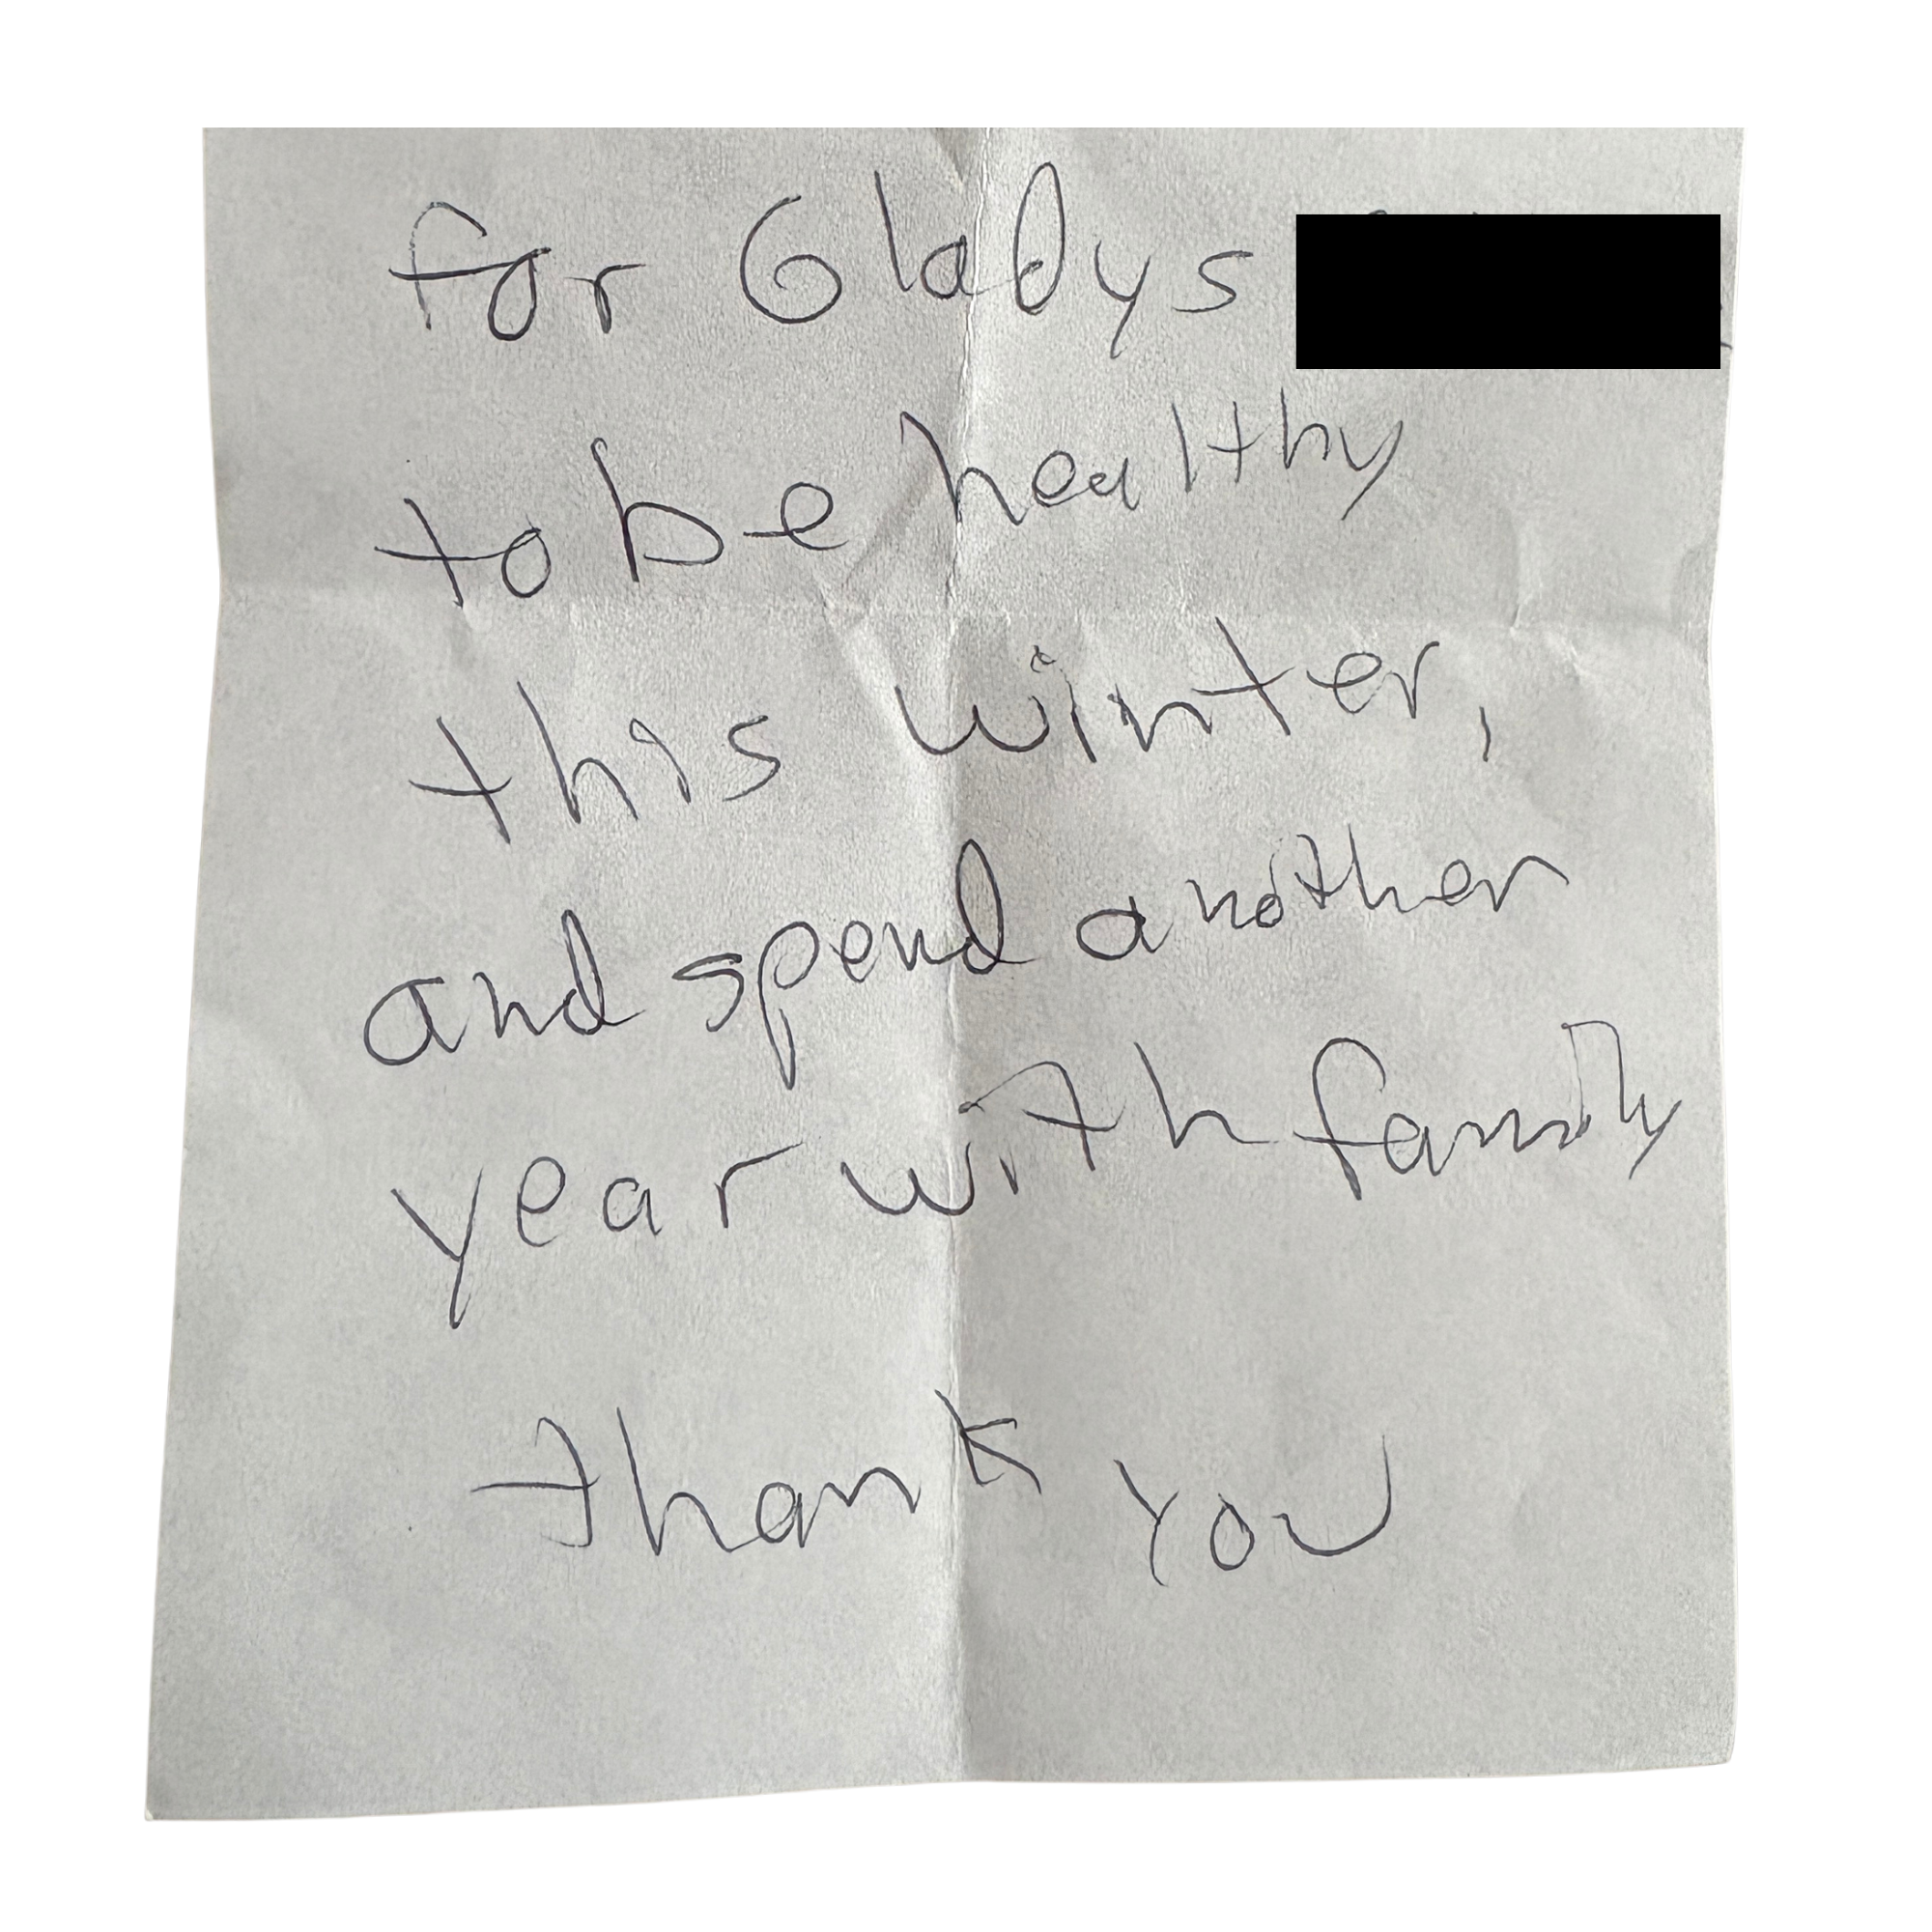 for Gladys
to be healthy
this winter,
and spend another
year with family
thank you